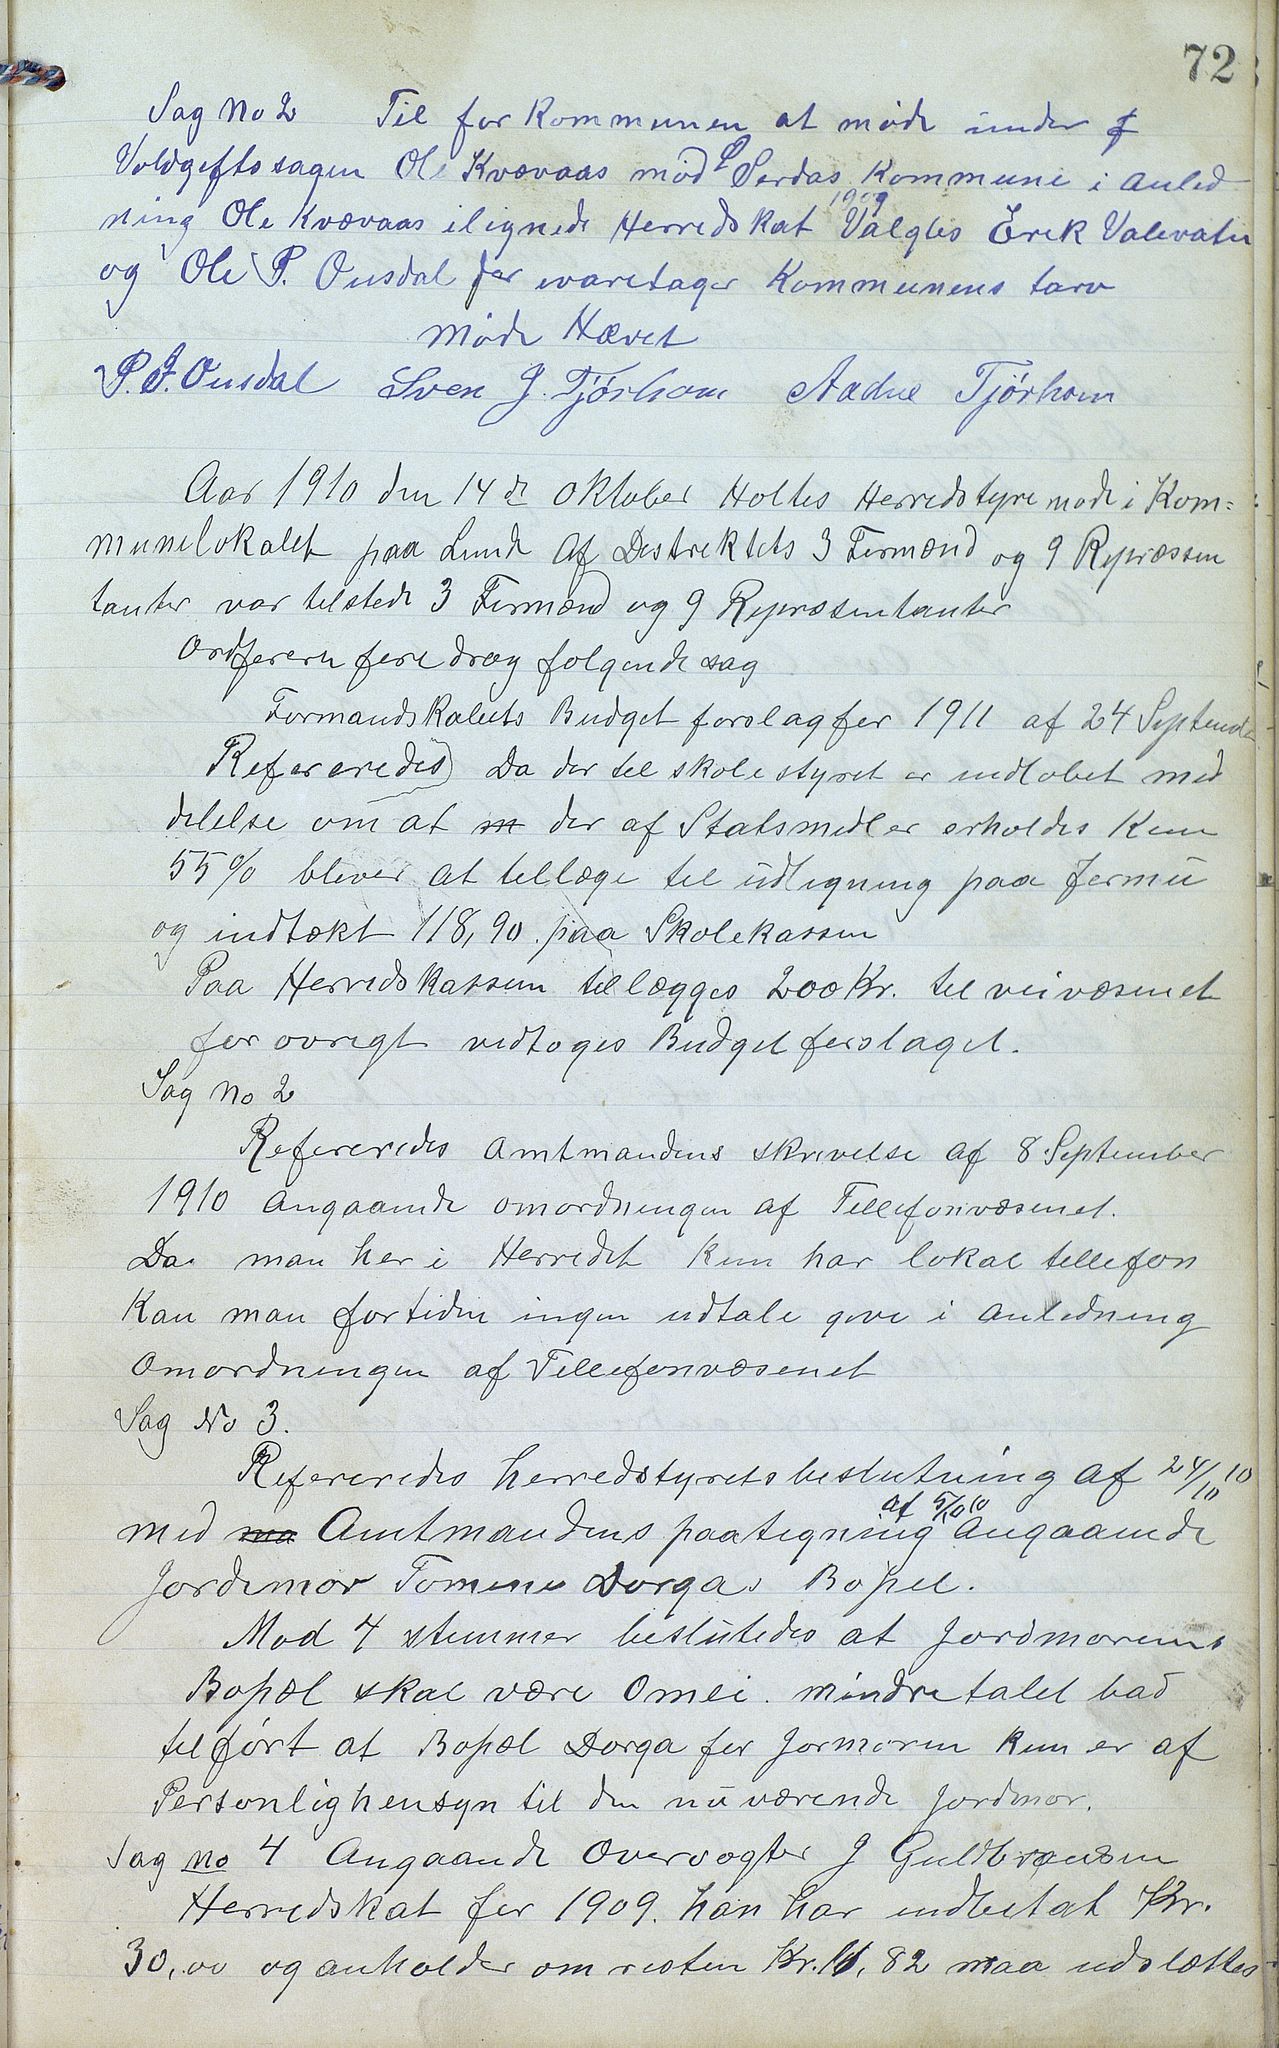 72
Sag No 2 Til for Kommunen at møde under
Voldgiftssagen Ole Kvævaas mod Serdas Kommune i anled
ning Ole Kvævaas ilignede Herredskat 1909 Valgtes Erek Valevatn
og Ole P. Ousdal for ivaretager Kommunens tarv
Møde Hævet
P. J. Ousdal Sven J. Tjørhom Aadne Tjørhom
Aar 1910 den 14de Oktober Holtes Herredstyremøde i Kom=
munelokalet paa Lunde Af Destrektets 3 Formænd og 9 Repræssen
tanter var telstede 3 Formænd og 9 Repræsentanter
Ordføreren foredrog følgende sag
Formandskabets Budget forslag for 1911 af 24 Septemb
Refereredes) Da der tel skolestyret er indløbet med
delelse om at der af Statsmedler erholdes Kun
55% bliver at tellæge tel udligning paa formu
og indtækt 118,90 paa Skolekassen
Paa Herredskassen tellægges 200 Kr. tel veivæsenet
for øvrigt vedtoges Budgetforslaget.
Sag no 2
Refereredes Amtmandens skrivelse af 8 September
1910 angaaende omordningen af Tellefonvæsenet.
Da man her i Herredet Kun har lokal tellefon
Kan man fortiden ingen udtale give i anledning
Omordningen af Tellefonvæsenet
Sag No 3.
Refereredes herredstyretsbeslutning af 24/10 10
med Amtmandens paategning af 5/10 10 angaaende
Jordemor Tomine Dorgas Bopel.
Mod 4 stemmer beslutedes at Jordmorens
Bopæl skal være Omlie. mindretalet bad
telført at Bopæl Dorga for Jormoren Kun er af
Personlighensyn til den nuværende Jordmor.
Sag no 4 Angaaende Overvogter J Guldbransen
Herredskat for 1909. han har indbetalt Kr.
30,00 og anholder om resten Kr. 16,82 maa udslættes